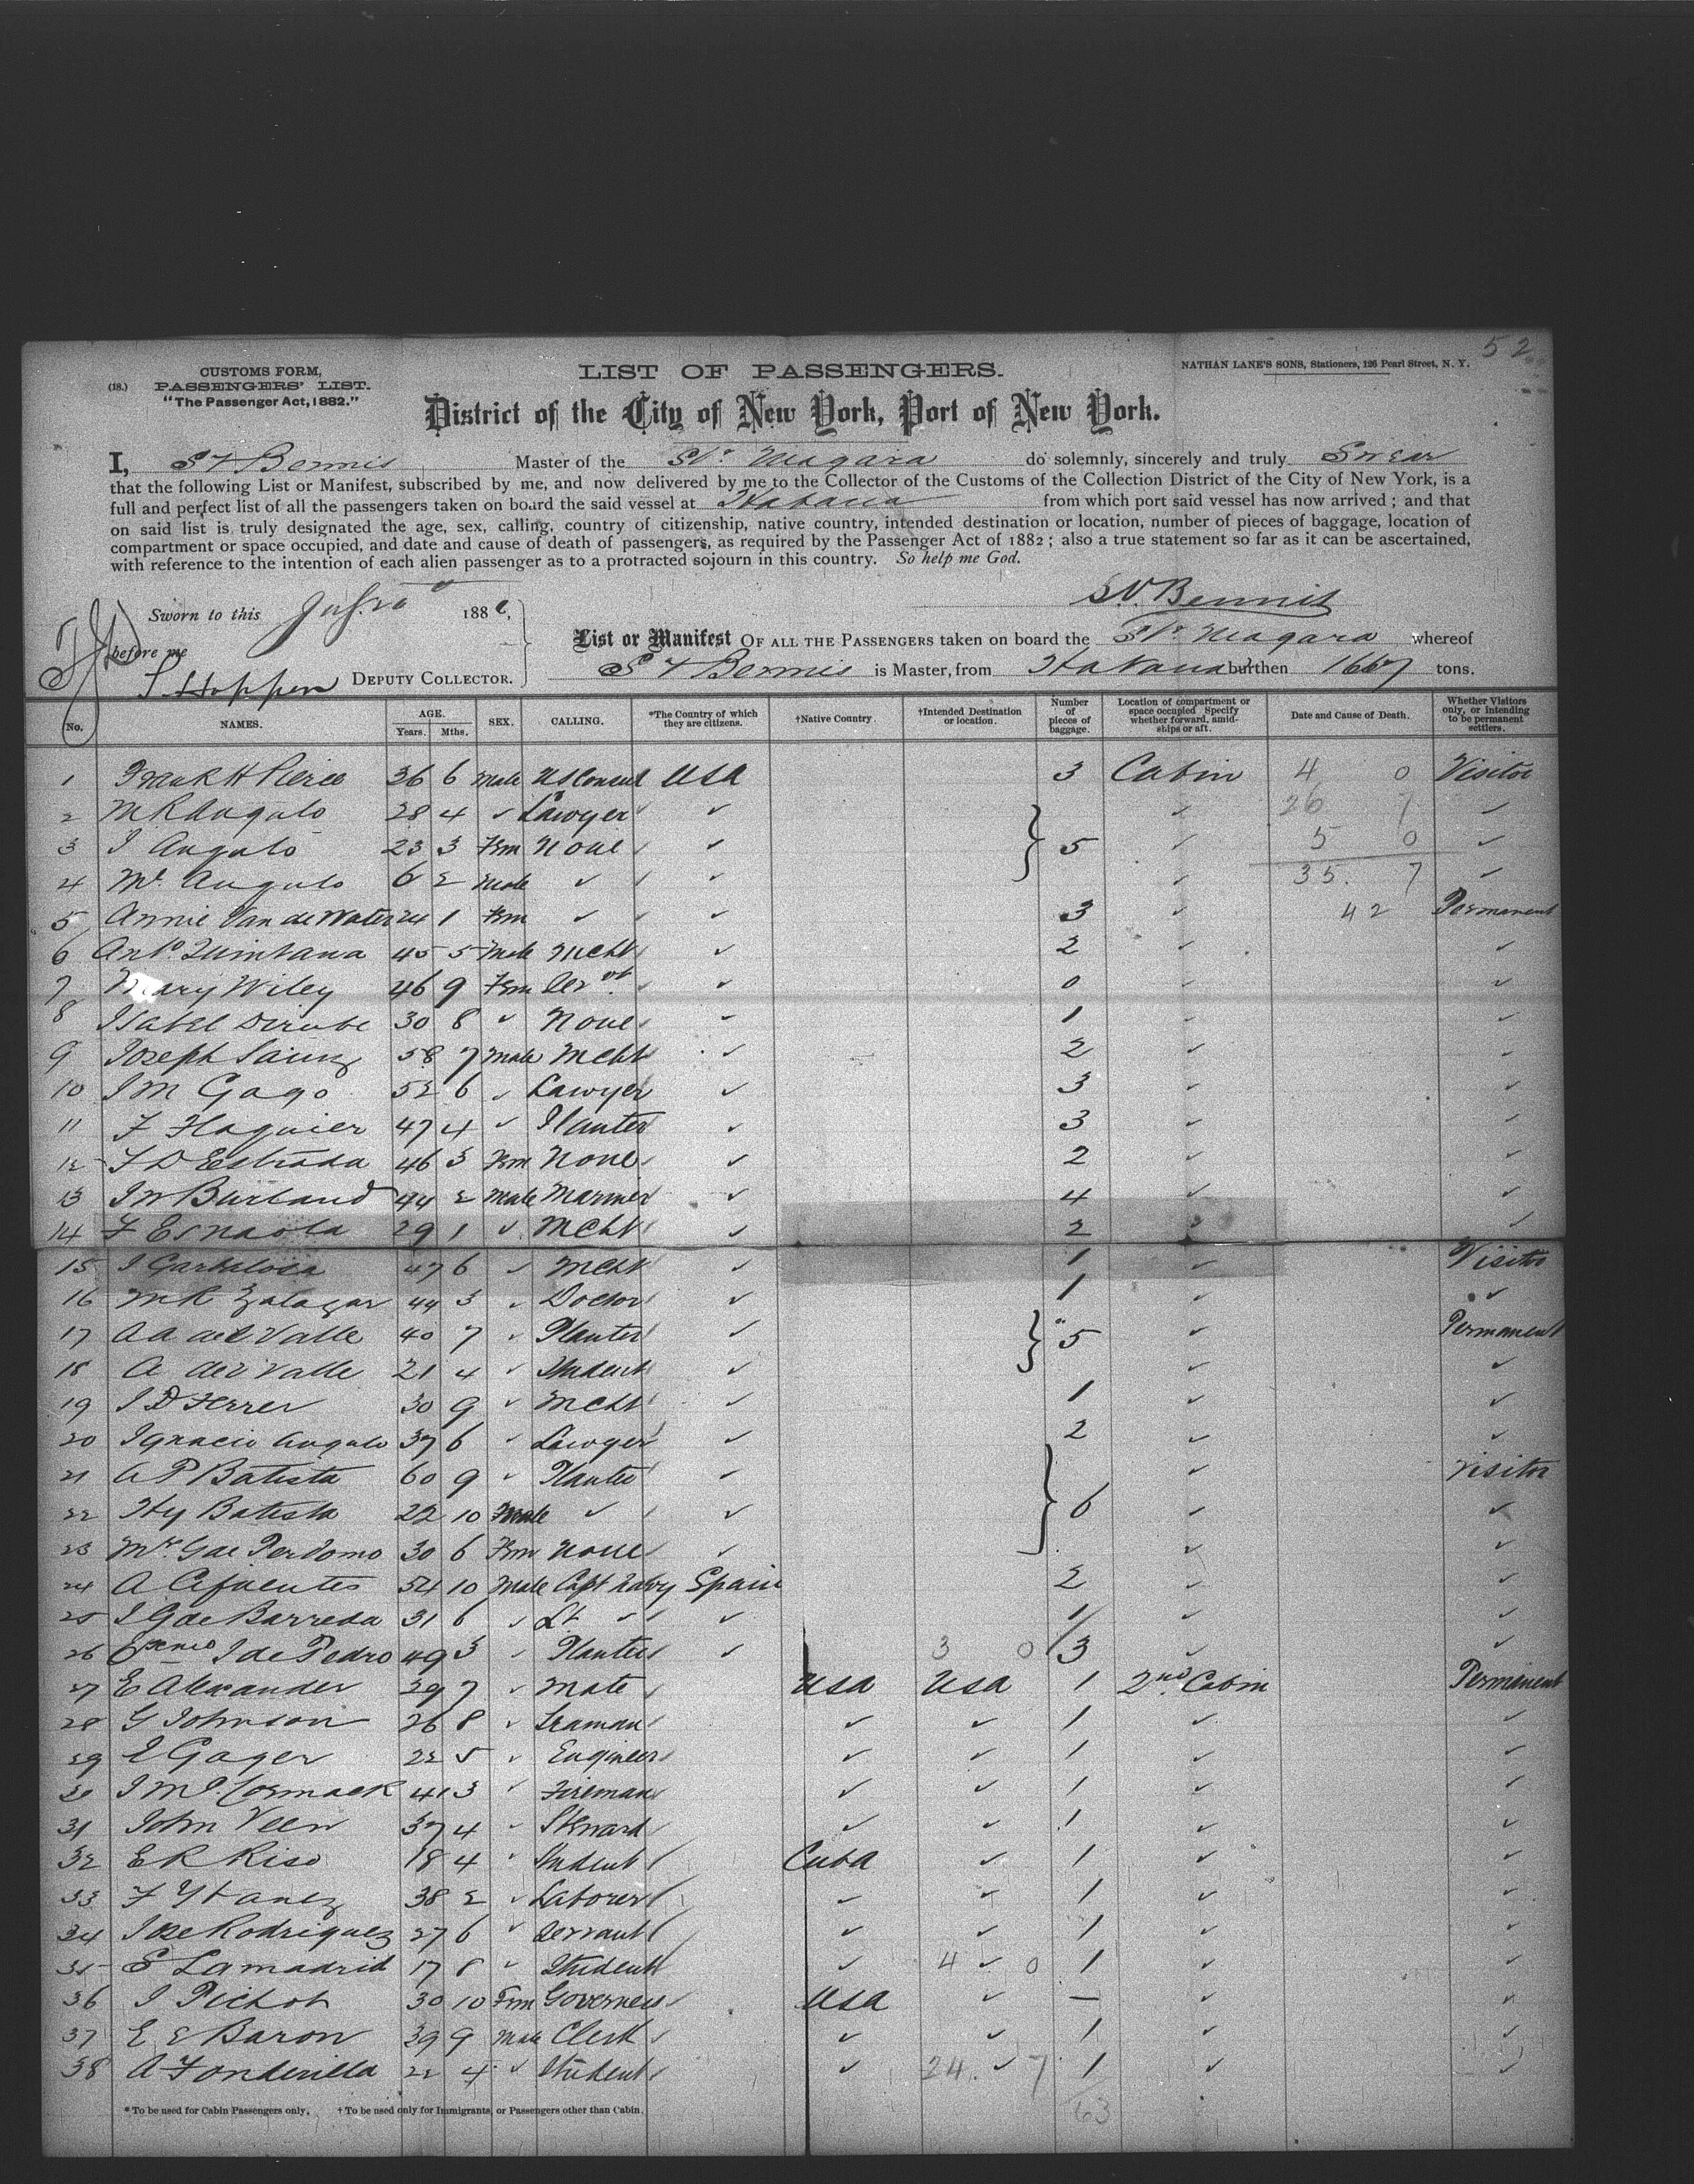 52
CUSTOMS FORM,
(18.) PASSENGERS' LIST.
"The Passenger Act, 1882."
LIST OF PASSENGERS.
NATHAN LANE'S SONS, Stationers, 126 Pearl Street, N. Y.
District of the City of New York, Port of New York.
I, Bennis Master of the Str Niagara do solemnly, sincerely and truly Swear
that the following List or Manifest, subscribed by me, and now delivered by me to the Collector of the Customs of the Collection District of the City of New York, is a
full and perfect list of all the passengers taken on board the said vessel at Habana from which port said vessel has now arrived; and that
on said list is truly designated the age, sex, calling, country of citizenship, native country, intended destination or location, number of pieces of baggage, location of
compartment or space occupied, and date and cause of death of passengers, as required by the Passenger Act of 1882; also a true statement so far as it can be ascertained,
with reference to the intention of each alien passenger as to a protracted sojourn in this country. So help me God.
Sworn to this 188
before me
DEPUTY COLLECTOR.
List or Manifest OF ALL THE PASSENGERS taken on board the Str Niagara whereof
Bennis is Master, from Habana burthen 1667 tons.
No. NAMES. AGE. Years. Mths. SEX. CALLING. *The Country of which they are citizens. †Native Country. †Intended Destination or location. Number of pieces of baggage. Location of compartment or space occupied Specify whether forward, amidships or aft. Date and Cause of Death. Whether Visitors only, or intending to be permanent settlers.
1 Frank H Pierce 36 6 Male US Consul USA 3 Cabin 4 0 Visitor
2 M R Angulo 28 4 ✓ Lawyer ✓ ✓ 26 7 ✓
3 I Angulo 23 3 Fem None ✓ } 5 ✓ 5 0 ✓
4 Angulo 6 2 Male ✓ ✓ ✓ 35. 7 ✓
5 Annie Van de Water 24 1 Fem ✓ ✓ 3 ✓ 42 Permanent
6 Anto Quintana 45 5 Male Mcht ✓ 2 ✓ ✓
7 Mary Wiley 46 9 Fem ✓ 0 ✓ ✓
8 Isabel Dirube 30 8 ✓ None ✓ 1 ✓ ✓
9 Joseph Sainz 58 7 Male Mcht ✓ 2 ✓ ✓
10 I M Gago 52 6 ✓ Lawyer ✓ 3 ✓ ✓
11 F Haguier 47 4 ✓ Planter ✓ 3 ✓ ✓
12 F D Estrada 46 3 Fem None ✓ 2 ✓ ✓
13 Burland 44 2 Male Mariner ✓ 4 ✓ ✓
14 F Esnaola 29 1 ✓ Mcht ✓ 2 ✓ ✓
15 I Garbalosa 47 6 ✓ Mcht ✓ 1 ✓ Visitor
16 M R Zalazar 44 3 ✓ Doctor ✓ 1 ✓ ✓
17 A A del Valle 40 7 ✓ Planter ✓ } 5 ✓ Permanent
18 A del Valle 21 4 ✓ Student ✓ ✓
19 I D Ferrer 30 9 ✓ Mcht ✓ 1 ✓ ✓
20 Ignacio Angulo 37 6 ✓ Lawyer ✓ 2 ✓ ✓
21 A P Batista 60 9 ✓ Planter ✓ ✓ Visitor
22 Hy Batista 22 10 Male ✓ ✓ } 6 ✓ ✓
23 Mrs G de Perdomo 30 6 Fem None ✓ ✓ ✓
24 A Cifuentes 54 10 Male Capt Navy Spain 2 ✓ ✓
25 I G de Barreda 31 6 ✓ Lt ✓ ✓ 1 ✓ ✓
26 I de Pedro 49 3 ✓ Planter ✓ 3 0 3 ✓ ✓
27 E Alexander 29 7 ✓ Mate USA USA 1 2nd Cabin Permanent
28 G Johnson 26 8 ✓ Seaman ✓ ✓ 1 ✓ ✓
29 E Gager 22 5 ✓ Engineer ✓ ✓ 1 ✓ ✓
30 I McCormack 41 3 ✓ Fireman ✓ ✓ 1 ✓ ✓
31 John Veen 37 4 ✓ Steward ✓ ✓ 1 ✓ ✓
32 E R Riso 18 4 ✓ Student Cuba ✓ 1 ✓ ✓
33 F Ybanez 38 2 ✓ Laborer ✓ ✓ 1 ✓ ✓
34 Jose Rodriguez 27 6 ✓ Servant ✓ ✓ 1 ✓ ✓
35 E Lamadrid 17 8 ✓ Student ✓ 4 ✓ 0 1 ✓ ✓
36 I Pichot 30 10 Fem Governess USA ✓ — ✓ ✓
37 E E Baron 39 9 Male Clerk ✓ ✓ 1 ✓ ✓
38 A Fonderilla 22 4 ✓ Student ✓ 24. ✓ 7 1 ✓ ✓
63
* To be used for Cabin Passengers only. † To be used only for Immigrants, or Passengers other than Cabin.